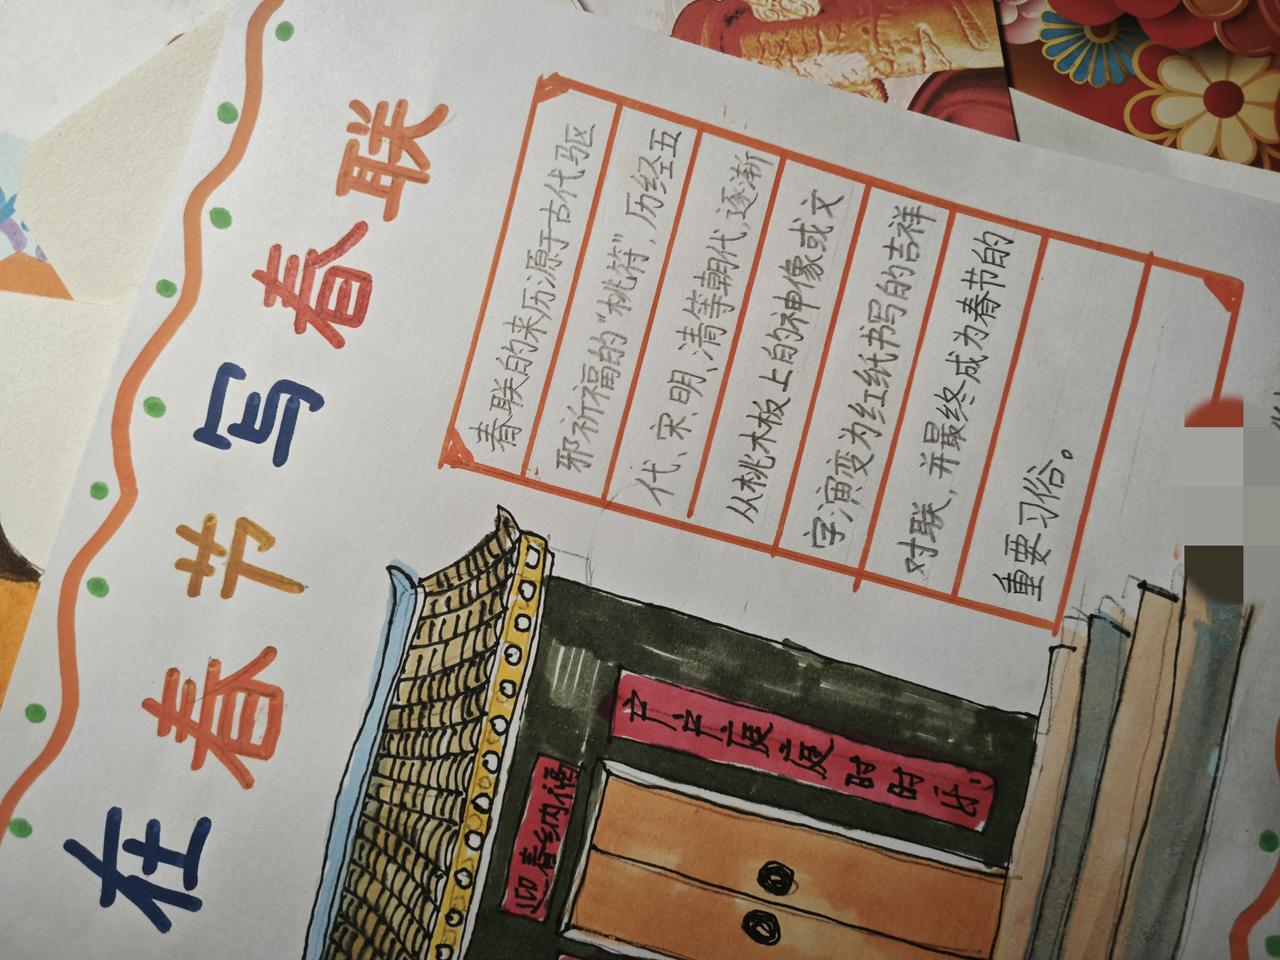 在春节写春联
春联的来历源于古代驱
邪祈福的“桃符”，历经五
代、宋、明、清等朝代，逐渐
从桃木板上的神像或文
字演变为红纸书写的吉祥
对联，并最终成为春节的
重要习俗。
户户庭庭时时乐
迎春纳福